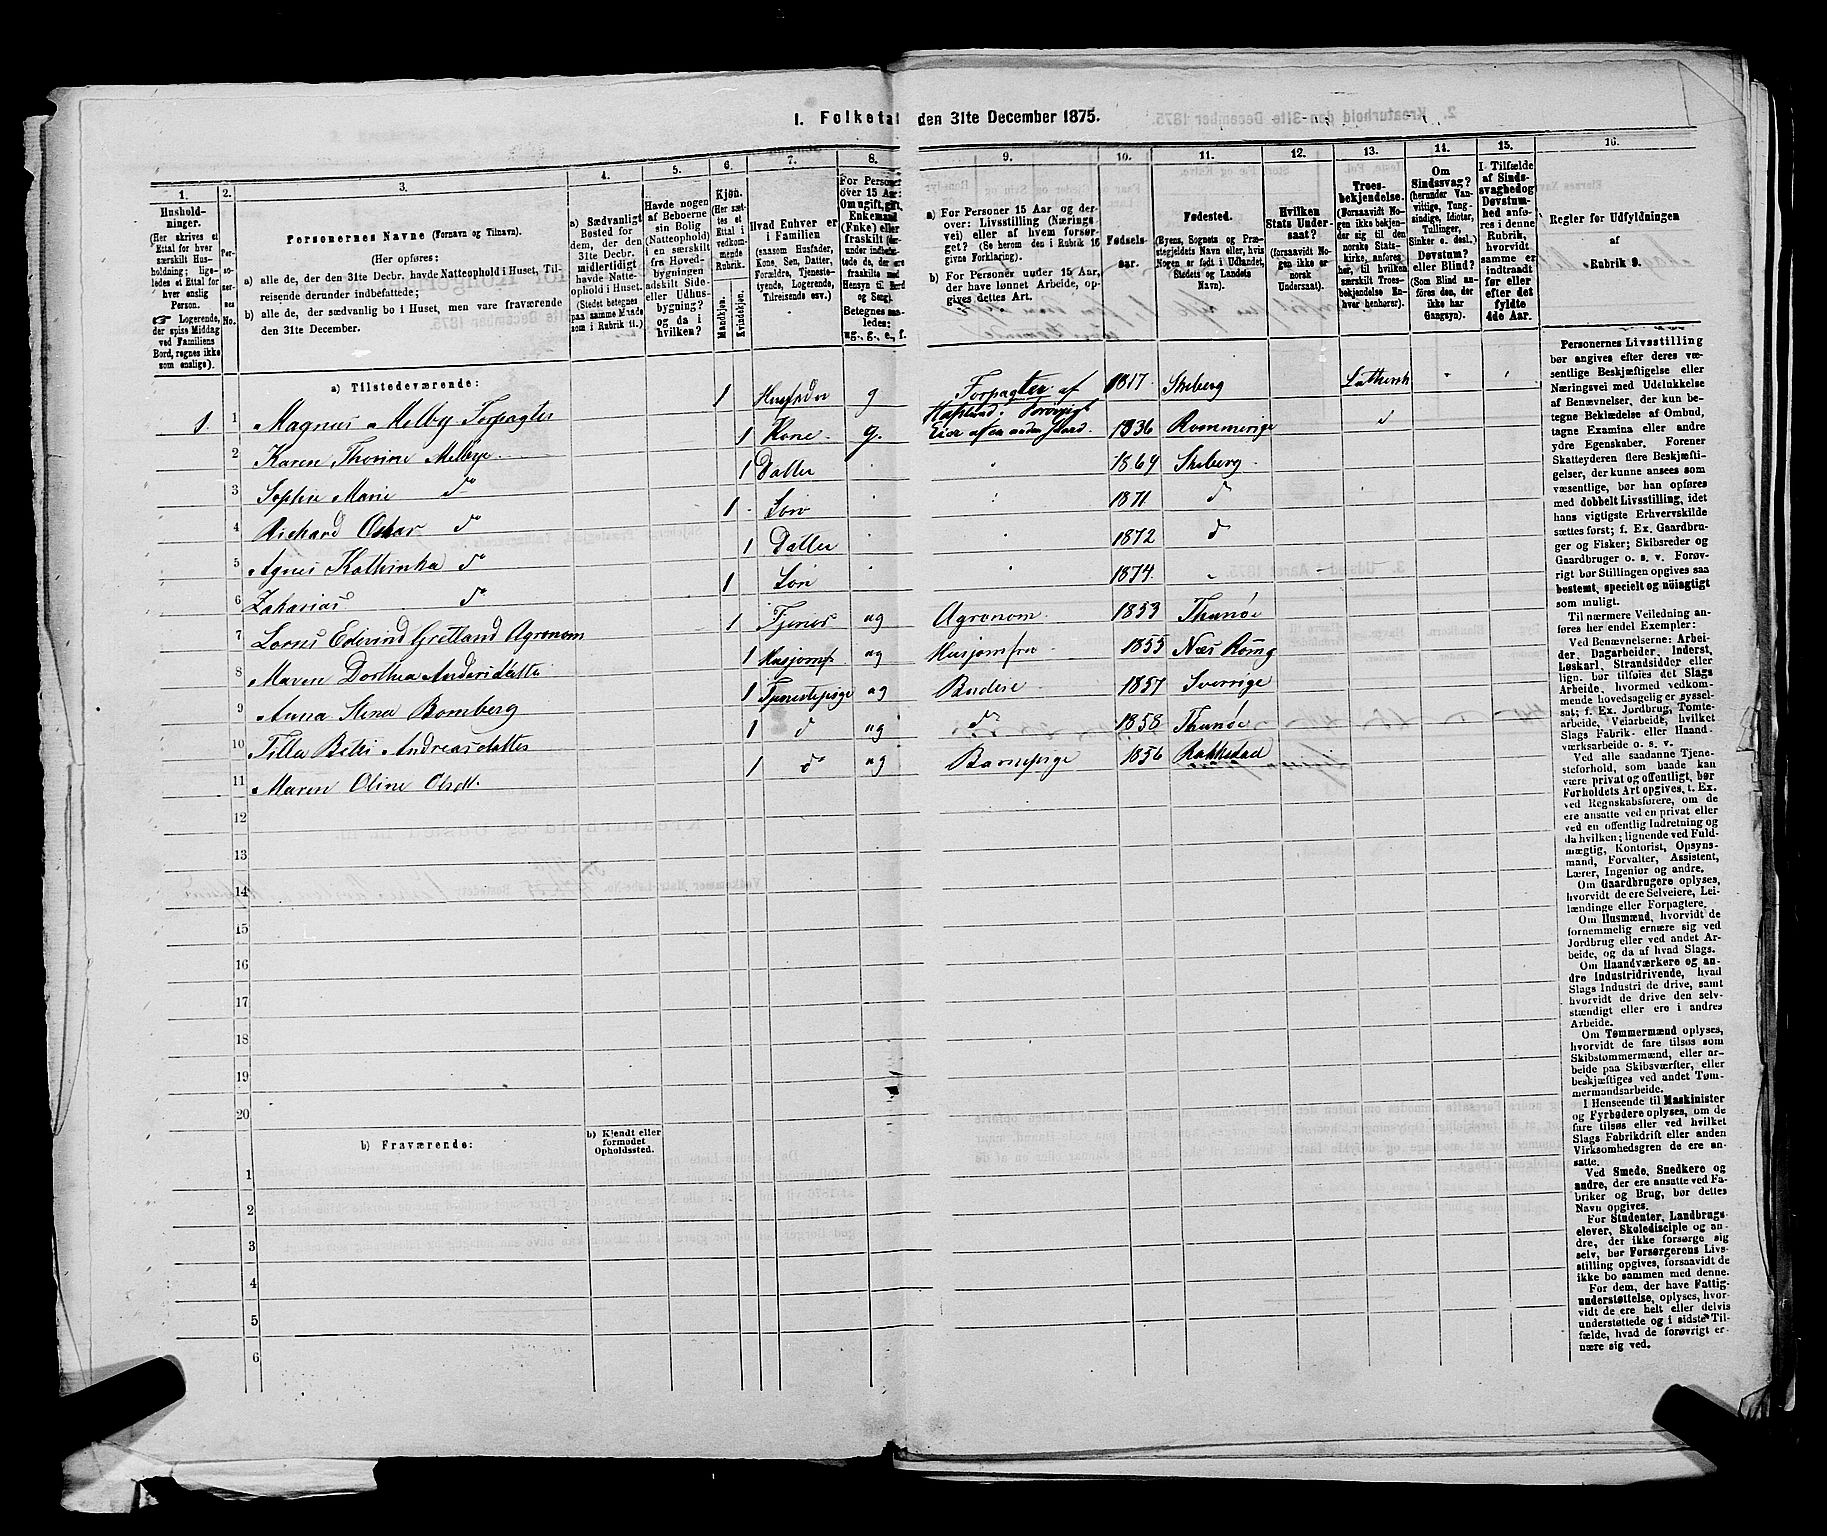 1. Folketal den 31te December 1875.
1. 2. 3. 4. 5. 6. 7. 8. 9. 10. 11. 12. 13. 14. 15. 16.
Husholdninger.
(Her skrives et Ettal for hver særskilt Husholdning; ligeledes et Ettal for hver enslig Person.
☞ Logerende, der spise Middag ved Familiens Bord, regnes ikke som enslige).
Personernes No.
Personernes Navne (Fornavn og Tilnavn).
(Her opføres:
a) alle de, der den 31te Decbr. havde Natteophold i Huset, Tilreisende derunder indbefattede;
b) alle de, der sædvanlig bo i Huset, men vare fraværende den 31te December.
a) Sædvanligt Bosted for dem, der den 31te Decbr. midlertidigt havde Natteophold i Huset. (Stedet betegnes paa samme Maade som i Rubrik 11.)
Havde nogen af Beboerne sin Bolig (Natteophold) i en særskilt fra Hovedbygningen adskilt Side- eller Udhusbygning? og da i hvilken?
Kjøn. (Her sættes et Ettal i vedkommende Rubrik.
Mandkjøn. Kvindekjøn.
Hvad Enhver er i Familien (saasom Husfader, Kone, Søn, Datter, Forældre, Tjenestetyende, Logerende, Tilreisende osv.)
For Personer over 15 Aar: Om ugift, gift, Enkemand (Enke) eller fraskilt
Betegnes saaledes: ug., g., e., f.
a) For Personer 15 Aar og derover: Livsstilling (Næringsvei) eller af hvem forsørget? (Se herom den i Rubrik 16 givne Forklaring).
b) For Personer under 15 Aar, der have lønnet Arbeide, opgives dettes Art.
Fødselsaar.
Fødested.
(Byens, Sognets og Præstegjeldets Navn eller, hvis Nogen er født i Udlandet, Stedets og Landets Navn).
Hvilken Stats Undersaat?
(forsaavidt Nogen ikke er norsk Undersaat).
Troesbekjendelse.
(Forsaavidt Nogen ikke bekjender sig til den norske Statskirke, anføres her, til hvilken særskilt Troesbekjendelse Enhver henhører).
Om Sindssvag? (herunder Vanvittige, Tungsindige, Idioter, Tullinger, Sinker o. desl.) Døvstum? eller Blind?
(Som Blind anføres den, der ikke har Gangsyn).
I Tilfælde af Sindssvaghed og Døvstumhed anføres i denne Rubrik, hvorvidt samme er indtraadt før eller efter det fyldte 4de Aar.
Regler for Udfyldningen af Rubrik 9.
a) Tilstedeværende:
1 1 Magnus Melby Forpagter 1 Husfader g Forpagter af Hafslund. Forøvrigt Eier af en anden Gaard. 1817. Skiberg Luthersk
2 Karen Thorine Melbye 1 Kone g. 1836 Rommerige d
3 Sophie Marie do 1 Datter 1864 Skiberg
4 Richard Oskar do 1 Søn 1871 d
5 Agnes Kathinka do 1 Datter 1872 d
6 Zakarias do 1 Søn 1874.
7 Lorns Edevind Gretland Agronom 1 Tjener ug Agronom 1853 Thunøe
8 Maren Dorthea Andersdatter 1 Husjomfr ug Husjomfru 1853 Næs Romg
9 Anna Stina Bomberg 1 Tjenestepige ug Budeie 1857 Sverrige
10 Tilla Betti Andreasdatter 1 d ug do 1858 Thunøe
11 Maren Oline Olsdt. 1 do ug Barnepige 1856 Rakkestad
12
13
14
15
16
17
18
19
20
b) Fraværende:
b) Kjendt eller formodet Opholdssted.
1
2
3
4
5
6
Personernes Livsstilling
bør angives efter deres væ-
sentlige Beskjæftigelse eller
Næringsvei med Udelukkelse
af Benævnelser, der kun be-
tegne Beklædelse af Ombud,
tagne Examina eller andre
ydre Egenskaber. Forener
Skatteyderen flere Beskjæfti-
gelser, der kunne ansees som
væsentlige, bør han opføres
med dobbelt Livsstilling, idet
hans vigtigste Erhvervskilde
sættes først; f. Ex. Gaardbru-
ger og Fisker; Skibsreder og
Gaardbruger o. s. v. Forøv-
rigt bør Stillingen opgives saa
bestemt, specielt og nöiagtigt
som muligt.
Til nærmere Veiledning an-
føres her endel Exempler:
Ved Benævnelserne: Arbei-
der, Dagarbeider, Inderst,
Løskarl, Strandsidder eller
lign. bør tilføies det Slags
Arbeide, hvormed vedkom-
mende hovedsagelig er syssel-
sat; f. Ex. Jordbrug, Tomte-
arbeide, Veiarbeide, hvilket
Slags Fabrik- eller Haand-
værksarbeide o. s. v.
Ved alle saadanne Tjene-
steforhold, som baade kan
være privat og offentligt, bør
Forholdets Art opgives, t. Ex.
ved Regnskabsførere, om de
ere ansatte ved en privat eller
ved en offentlig Indretning og
da hvilken; lignende ved Fuld-
mægtig, Kontorist, Opsyns-
mand, Forvalter, Assistent,
Lærer, Ingeniør og andre.
Om Gaardbrugere oplyses,
hvorvidt de ere Selveiere, Lei-
lændinge eller Forpagtere.
Om Husmænd, hvorvidt de
fornemmelig ernære sig ved
Jordbrug eller ved andet Ar-
beide, og da af hvad Slags.
Om Haandværkere og an-
dre Industridrivende, hvad
Slags Industri de drive, samt
hvorvidt de drive den selv-
stændigt eller ere i andres
Arbeide.
Om Tømmermænd oplyses,
hvorvidt de fare tilsøs som
Skibstømmermænd, eller ar-
beide paa Skibsværfter, eller
beskjæftiges ved andet Tøm-
mermandsarbeide.
I Henseende til Maskinister
og Fyrbødere oplyses, om de
fare tilsøs eller ved hvilket
Slags Fabrikdrift eller anden
Virksomhedsgren de ere an-
satte.
Ved Smede, Snedkere og
andre, der ere ansatte ved Fa-
briker og Brug, bør dettes
Navn opgives.
For Studenter, Landbrugs-
elever, Skoledisciple og an-
dre, der ikke forsørge sig
selv, bør Forsørgerens Livs-
stilling opgives, forsaavidt de
ikke bo sammen med denne.
For dem, der have Fattig-
understøttelse, oplyses, hvor-
vidt de ere helt eller delvis
understøttede og i sidste Til-
fælde, hvad de forøvrigt er-
nære sig ved.